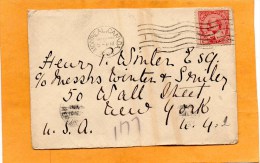 Henry P. Winter Esq.
c/o Messrs Winton & Smiley
50 Wall Street
New York
U.S.A. N.Y.
177